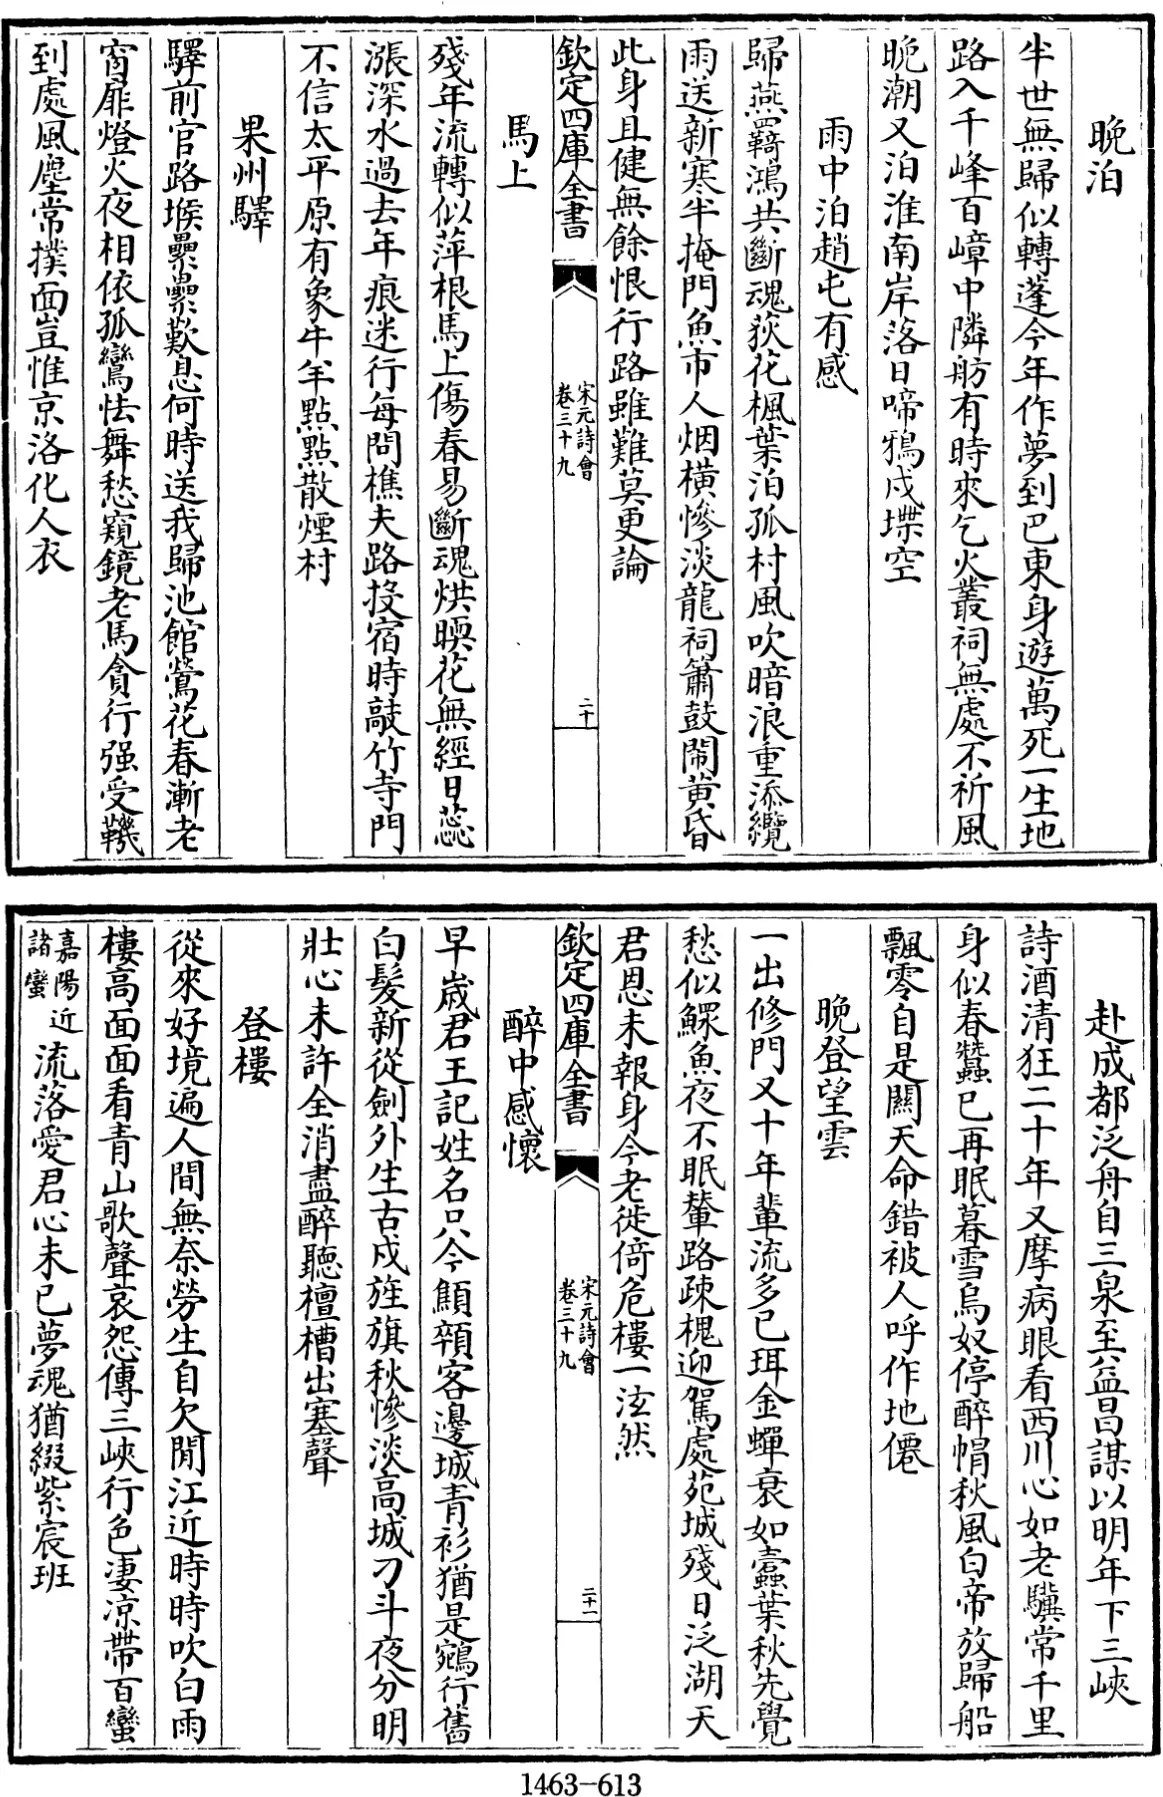 晚泊
半世無歸似轉蓬今年作夢到巴東身遊萬死一生地
路入千峰百嶂中隣舫有時來乞火叢祠無處不祈風
晚潮又泊淮南岸落日啼鴉戍堞空
雨中泊趙屯有感
歸燕羇鴻共斷魂荻花楓葉泊孤村風吹暗浪重添纜
雨送新寒半掩門魚市人烟橫慘淡龍祠簫鼓鬧黃昏
此身且健無餘恨行路雖難莫更論
欽定四庫全書
宋元詩會
卷三十九
二十
馬上
殘年流轉似萍根馬上傷春易斷魂烘暝花無經日蕊
漲深水過去年痕迷行每問樵夫路投宿時敲竹寺門
不信太平原有象牛羊點點散煙村
果州驛
驛前官路堠纍纍歎息何時送我歸池館鶯花春漸老
窗扉燈火夜相依孤鸞怯舞愁窺鏡老馬貪行强受鞿
到處風塵常撲面豈惟京洛化人衣
赴成都泛舟自三泉至益昌謀以明年下三峽
詩酒清狂二十年又摩病眼看西川心如老驥常千里
身似春蠶已再眠暮雪烏奴停醉帽秋風白帝放歸船
飄零自是關天命錯被人呼作地僊
晚登望雲
一出修門又十年輩流多已珥金蟬衰如蠹葉秋先覺
愁似鰥魚夜不眠輦路疎槐迎駕處苑城殘日泛湖天
君恩未報身今老徙倚危樓一泫然
欽定四庫全書
宋元詩會
卷三十九
二十一
醉中感懷
早歲君王記姓名只今顦顇客邊城青衫猶是鵷行舊
白髮新從劍外生古戍旌旗秋慘淡高城刁斗夜分明
壯心未許全消盡醉聽檀槽出塞聲
登樓
從來好境遍人間無奈勞生自欠閒江近時時吹白雨
樓高面面看青山歌聲哀怨傳三峽行色凄凉帶百蠻
嘉陽近
諸蠻
流落愛君心未已夢魂猶綴紫宸班
1463-613